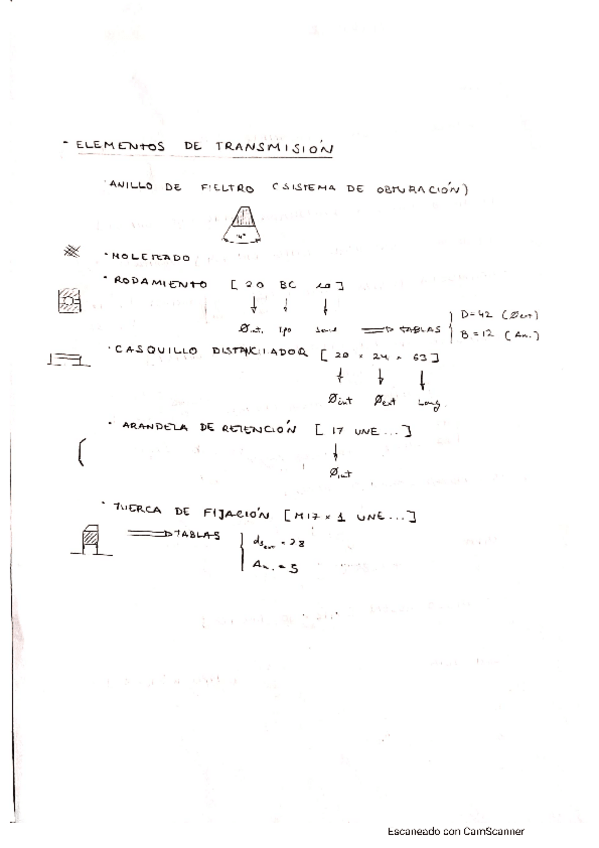 · ELEMENTOS DE TRANSMISIÓN
· ANILLO DE FIELTRO (SISTEMA DE OBTURACIÓN)
· MOLETEADO
· RODAMIENTO [ 20 BC 10 ]
Øint. tipo serie ⟹ TABLAS { D=42 (Øext)
B=12 (An.)
· CASQUILLO DISTANCIADOR [ 20 × 24 × 63 ]
Øint Øext Long.
· ARANDELA DE RETENCIÓN [ 17 UNE ... ]
Øint
· TUERCA DE FIJACIÓN [ M17 × 1 UNE ... ]
⟹ TABLAS { = 28
An. = 5
Escaneado con CamScanner